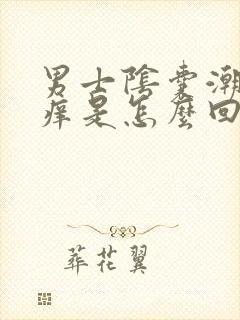 男士陰囊潮
痒是怎麼回
葬花翼